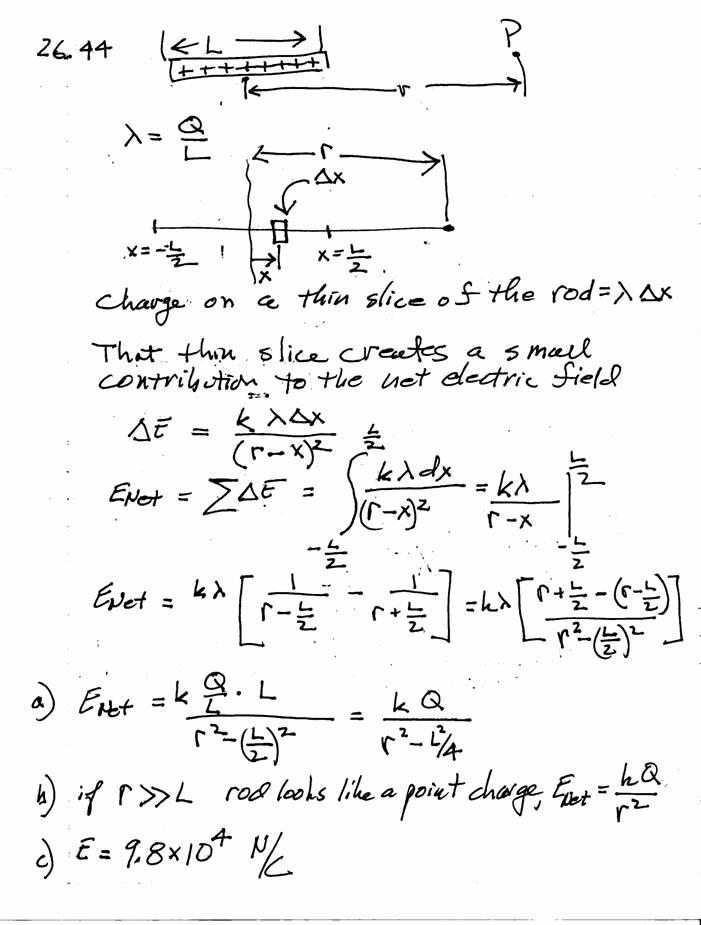 26.44
L
P
+ + + + + + +
r
λ = Q/L
r
Δx
x = -L/2
x
x = L/2
Charge on a thin slice of the rod = λ Δx
That thin slice creates a small
contribution to the net electric field
ΔE = k λ Δx / (r-x)²
E_Net = ∑ ΔE = ∫_{-L/2}^{L/2} k λ dx / (r-x)² = kλ / (r-x) |_{-L/2}^{L/2}
E_Net = kλ [ 1/(r - L/2) - 1/(r + L/2) ] = kλ [ (r + L/2 - (r - L/2)) / (r² - (L/2)²) ]
a) E_Net = k Q/L · L / (r² - (L/2)²) = k Q / (r² - L²/4)
b) if r >> L rod looks like a point charge, E_Net = kQ / r²
c) E = 9.8 × 10⁴ N/C